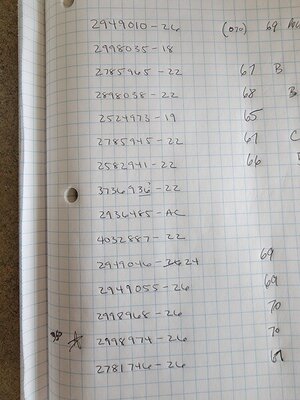 2949010-26 (010) 69
2998035-18
2785965-22 67 B
2898038-22 68 B
2524973-19 65
2785945-22 67 C
2582941-22 66
3736936-22
2936485-AC
4032887-22
2949046-24 69
2949055-26 69
2998968-26 70
2998974-26 70
2781746-26 67